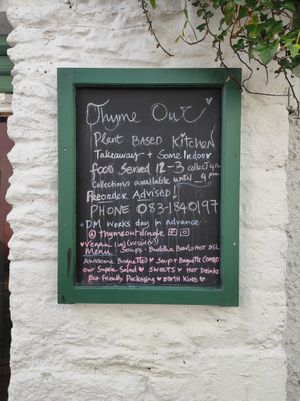 Thyme Out
Plant Based Kitchen
Takeaway + Some Indoor
food served 12-3 collect 4pm
Collections available until 4pm
Preorder Advised
PHONE 083-1840197
DM works day in advance
@ thymeoutdingle
Vegan
Menu: Soups Buddha Bowl Hot Dish
Awesome Baguettes Soup + Baguette Combo
our Super Salad Sweets Hot Drinks
Eco friendly Packaging Earth Kind